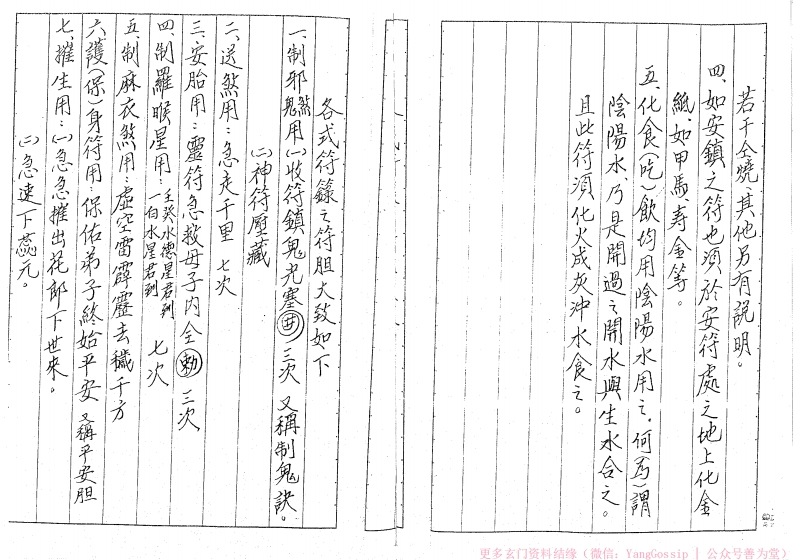 若干仝燒、其他另有說明。
四、如安鎮之符也須於安符處之地上化金
紙、如甲馬、壽金等。
五、化食(吃)飲均用陰陽水用之。何(爲)謂
陰陽水、乃是開過之開水與生水合之。
且此符須化火成灰沖水食之。
各式符籙之符胆大致如下
一、制邪煞鬼用(一)收符鎮鬼光塞井三次 又稱制鬼訣。
(二)神符壓藏
二、送煞用：急走千里 七次
三、安胎用：靈符急救母子內全勅 三次
四、制羅睺星用：壬癸水德星君到 一白水星君到 七次
五、制麻衣煞用：虛空雷霹靂去穢千方
六、護(保)身符用：保佑弟子終始平安 又稱平安胆
七、摧生用：(一)急急摧出花郎下世來。
(二)急速下蕊元。
更多玄门资料结缘（微信：YangGossip | 公众号善为堂）